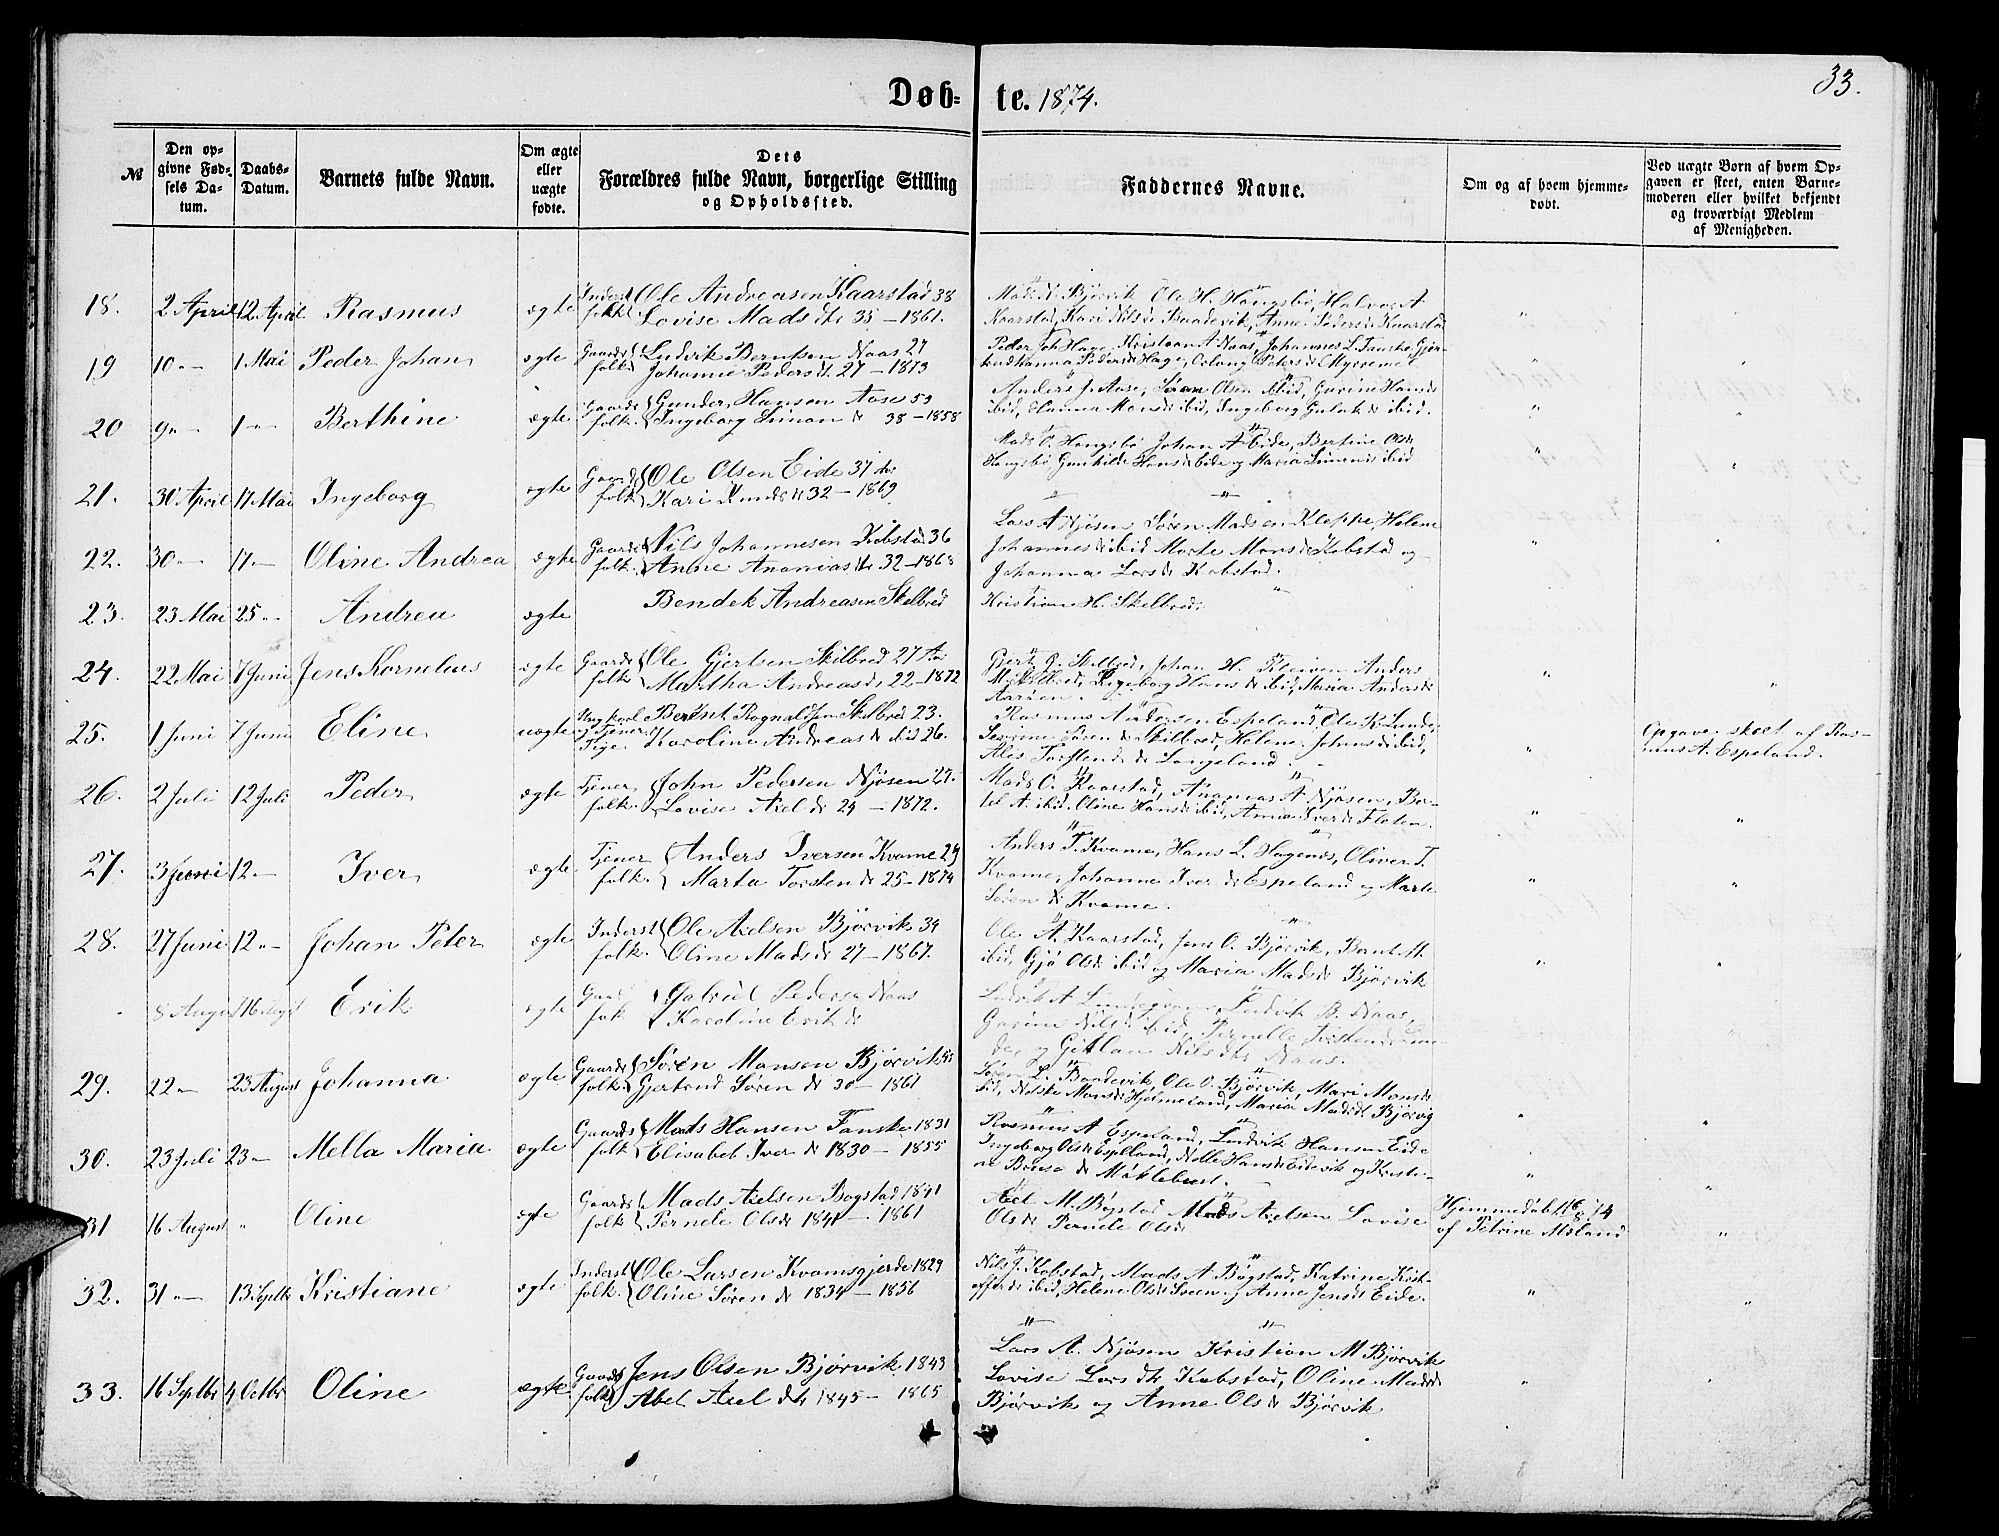 33.
Døb= te. 1874.
№
Den op-
givne Fød-
sels Da-
tum.
Daabs-
Datum.
Barnets fulde Navn.
Om ægte
eller
uægte
fødte.
Dets
Forældres fulde Navn, borgerlige Stilling
og Opholdssted.
Faddernes Navne.
Om og af hvem hjemme-
døbt.
Ved uægte Børn af hvem Op-
gaven er skeet, enten Barne-
moderen eller hvilket bekjendt
og troværdigt Medlem
af Menigheden.
18. 2 April 12 April Rasmus ægte Inderst folk Ole Andreasen Kaarstad 38
Lovise Mads dtr 35 – 1861.
Bjørvik Ole H. Hangsbø, Halvor A
Kaarstad, Kari Nils d Baadevik, Anne Peders d Kaarstad
19 10 " 1 Mai Peder Johan ægte Gaards folk Ludvik Berntsen Naas 27
Johanne Peders d. 27 – 1873
Peder Joh Hage, Kristian A Naas, Johannes L. Tanske, Gjer-
Peders d Hage, Peters d Myremel
20 9 " 1 " Berthine ægte Gaards folk Gunder Hansen Aase 53
Ingeborg Simon d 38 – 1858
Anders J. Aase, Søren Olsen ibid, Gurine Hans d
ibid, Mons d ibid, Ingeborg d ibid.
21. 30 April 17 Mai Ingeborg ægte Gaards folk Ole Olsen Eide 37
Kari Knuds d 32 – 1869
Mads O. Hangsbø Johan A Eide, Bertine Ols d
Hangsbø, Gunhilde Hans d Eide og Maria ibid
22. 30 " 17 " Oline Andrea ægte Gaards folk Nils Johannesen Kobstad 36
Anne Ananias dtr 32 – 1868
Lars A Njøsen Søren Madsen Kleppe, Helene
Johannes d ibid Marte Mons d Kobstad og
Johanna Lars d Kobstad.
23. 23 Mai 25 " Andrea ægte Bendek Andreasen Skelbred
Kristian H. Skelbred.
24. 22 Mai 7 Juni Jens Kornelius ægte Gaards folk Ole Gjertsen Skilbred 27 Aar
Martha Andreas d. 22 – 1872
Gjert O. Skilbred, Johan H. Kleiven Anders
Ingeborg Hans d ibid, Maria Anders d
25. 1 Juni 7 Juni Eline uægte Ungkarl og Tjener Pige Berent Rognaldsen Skelbred 23.
Karoline Andreas d ibid 26.
Rasmus Andersen Espeland, Ole K Lunde,
Severine Søren d Skilbred, Helene Johans d ibid,
Torsten d Langeland.
Opgave skeet af Ras-
mus A. Espeland.
26. 2 Juli 12 Juli Peder ægte Tjener folk John Pedersen Njøsen 27.
Lovise Axel d 24 – 1872.
Mads O. Kaarstad, Ananias A Njøsen, Ber-
tel A. ibid. Oline Hans d ibid, Anne Iver d Floten.
27. 3 Juni 12 " Iver ægte Tjener folk Anders Iversen Kvame 29
Marta Torsten d 25 – 1874
Anders T. Kvame, Hans L. Hagenæs, Oliver T.
Kvame, Johanne Iver d Espeland og Marte
Søren d Kvame.
28. 27 Juni 12 " Johan Peter ægte Inderst folk Ole Axelsen Bjørvik 34
Oline Mads d 27 – 1867.
Ole A. Kaarstad, Jens O. Bjørvik, Bernt M.
ibid, Gjø Ols d ibid og Maria Mads d Bjørvik
8 August 16 Aug Erik ægte Gaard folk Gabriel Pederse Naas
Karoline Erik d
Ludvik A Ludvik B. Naas,
Gurine Nils d ibid, Pernelle
og Gitlan Nilsdtr Naas.
29. 22 " 23 August Johanna ægte Gaards folk Søren Monsen Bjørvik
Gjertrud Søren d 30 – 1861
Søren L. Baadevik, Ole O. Bjørvik, Mari Mons d
ibid, Nilske Mons d Hjelmeland, Maria Mads d Bjørvig
30. 23 Juli 23 " Mella Maria ægte Gaards folk Mads Hansen Tanske 1831
Elisabet Iver d 1830 – 1855
Rasmus A. Espeland, Ludvik Hansen Eide
Ingeborg Ols d Espeland, Nelle Hans d Eidevik og Kristi-
ne d Møklebust.
31 16 August " Oline ægte Gaards folk Mads Axelsen Bogstad 1841
Pernele Ols d 1841 – 1861
Axel M. Bøgstad Mads Axelsen Lovise
Ols d Pernele Ols d
Hjemmedøbt 16/8 74
af Petrine Alsland
32. 31 " 13 Septbr Kristiane ægte Inderst folk Ole Larsen Kvamsgjerde 1829
Oline Søren d 1834 – 1856
Nils J. Kobstad, Mads A Bøgstad, Katrine Krist-
offers d ibid, Helene Ols d Sveen og Anne Jens d Eide.
33. 16 Septbr 4 Octbr Oline ægte Gaards folk Jens Olsen Bjørvik 1843
Abel Axel dtr 1845 – 1865
Lars A. Njøsen Kristian M Bjørvik
Lovise Lars dtr Kobstad, Oline Mads d
Bjørvik og Anne Ols d Bjørvik